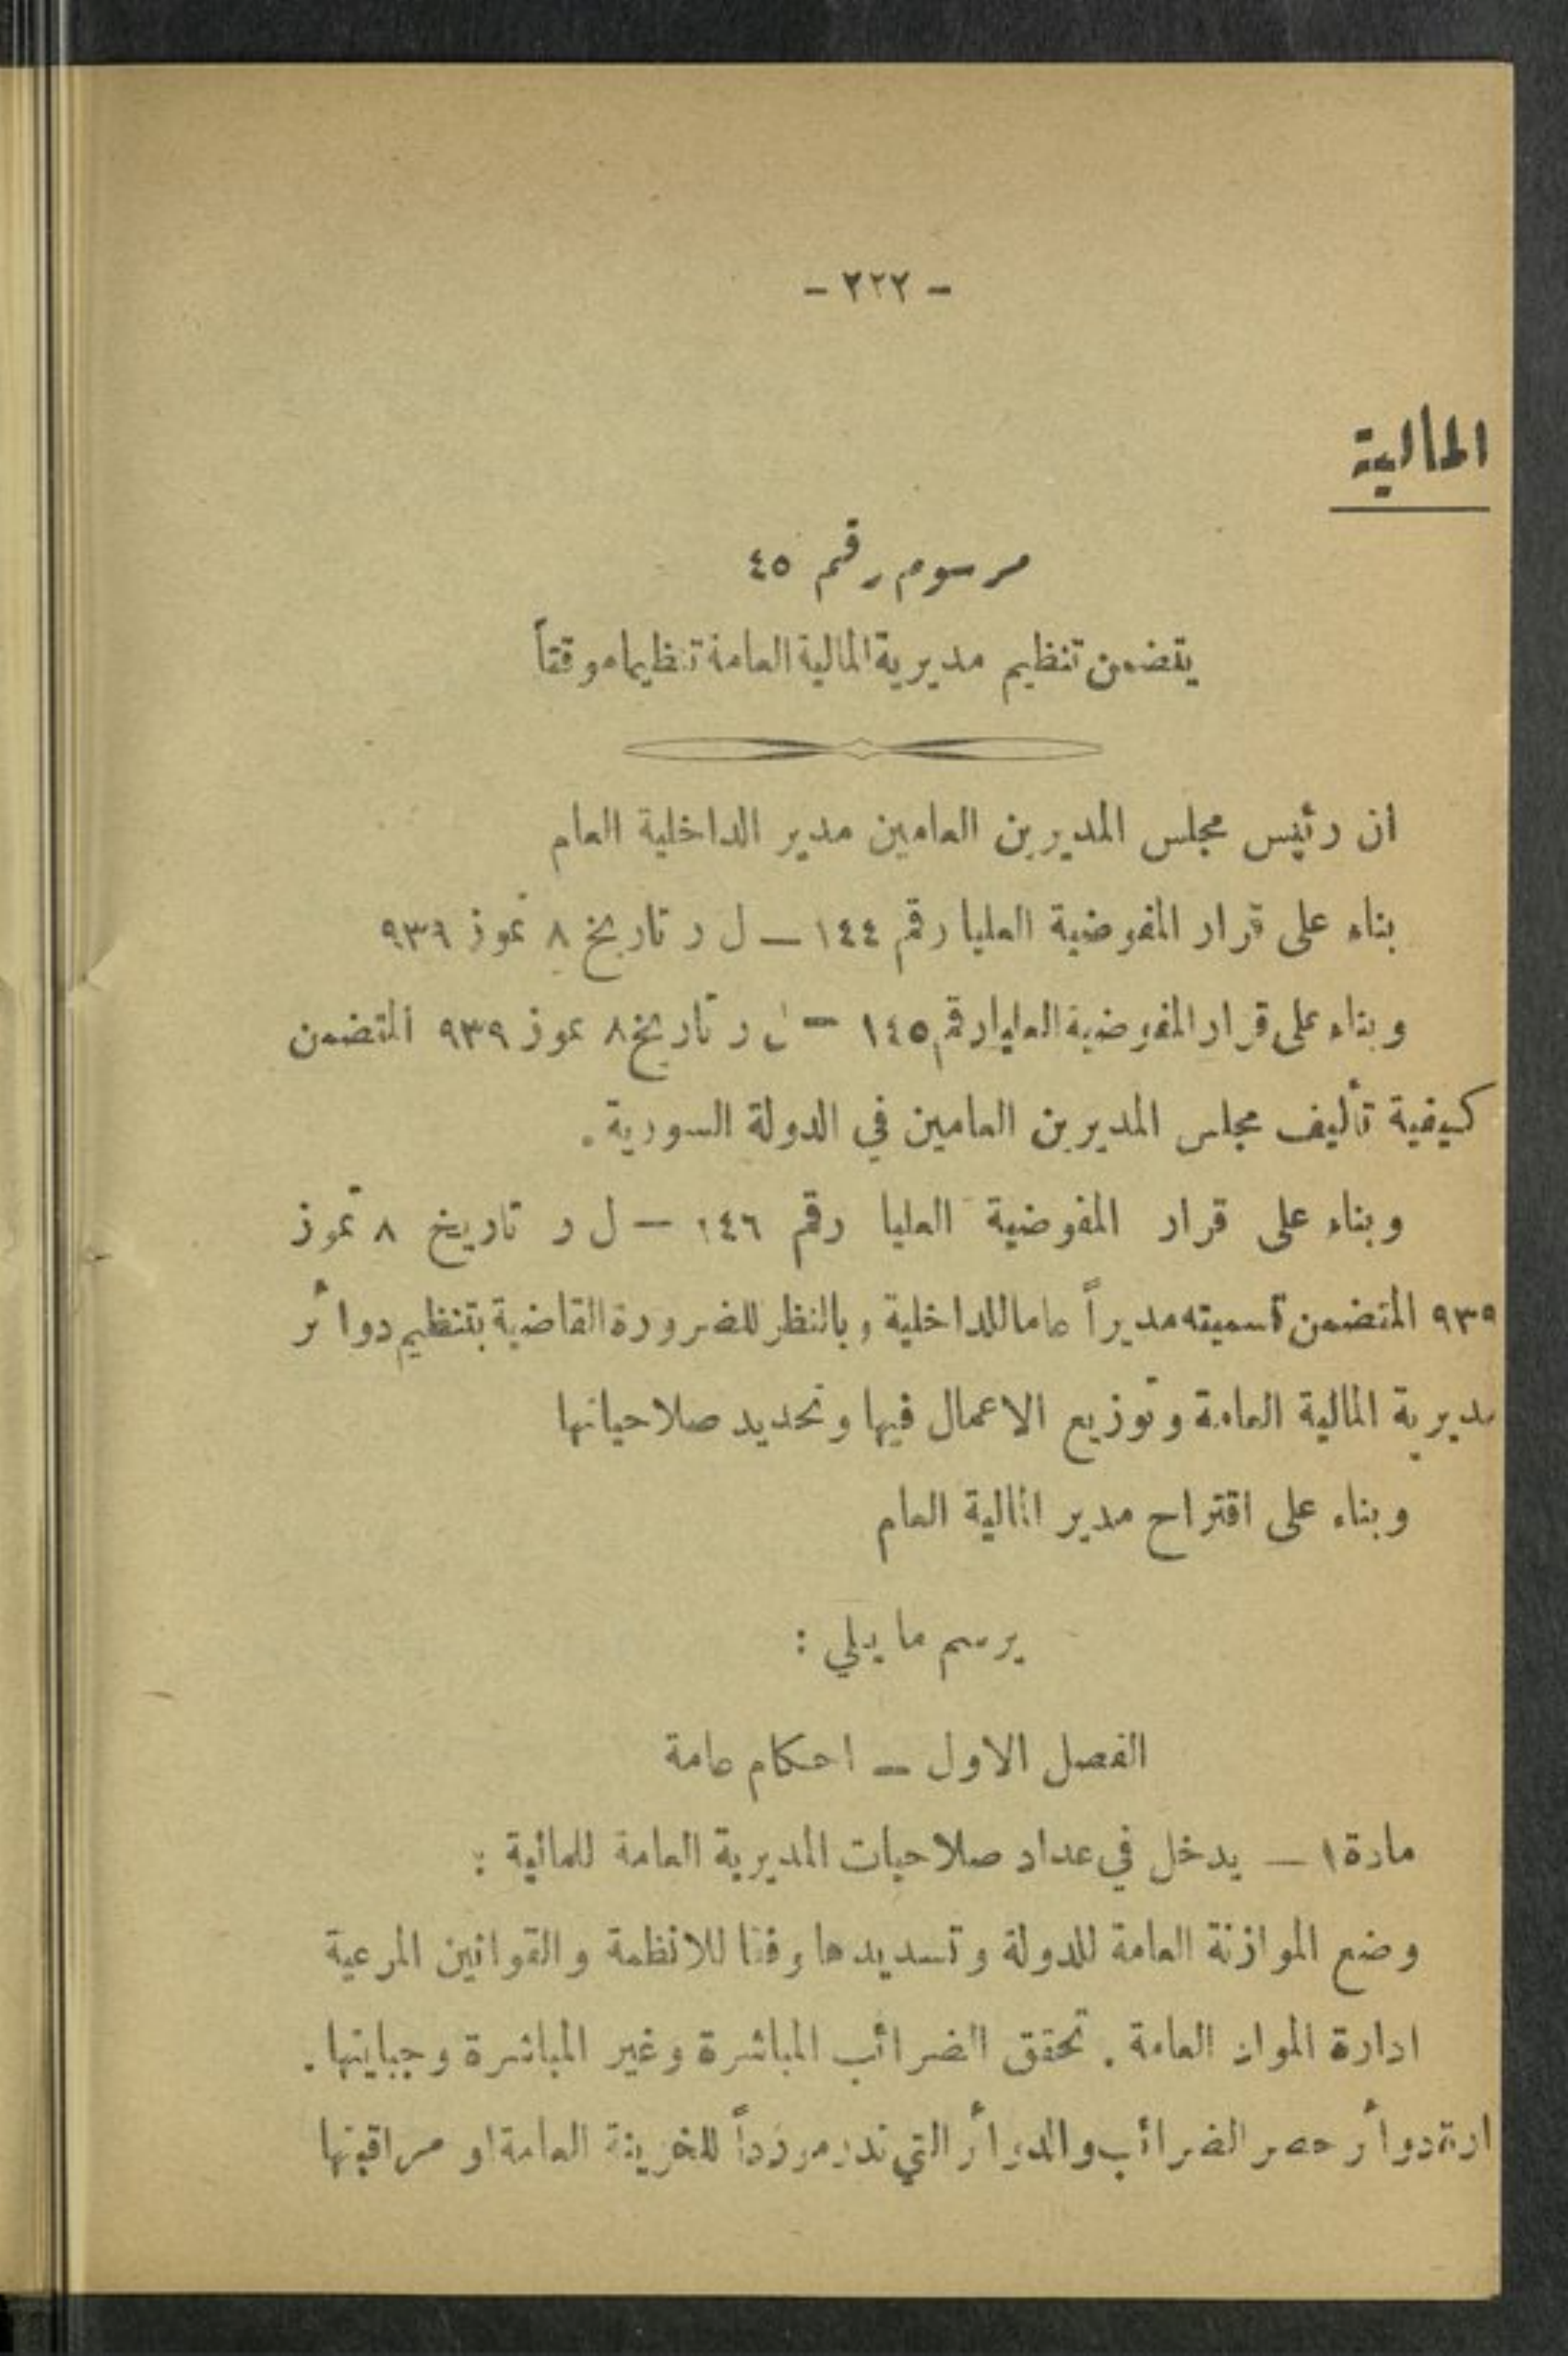 - ٢٢٢ -
المالية
مرسوم رقم ٤٥
يتضمن تنظيم مديرية المالية العامة تنظيما موقتاً
ان رئيس مجلس المديرين العامين مدير الداخلية العام
بناء على قرار المفوضية العليا رقم ١٤٤ — ل ر تاريخ ٨ تموز ٩٣٩
وبناء على قرار المفوضية العليا رقم ١٤٥ — ل ر تاريخ ٨ تموز ٩٣٩ المتضمن
كيفية تأليف مجلس المديرين العامين في الدولة السورية .
وبناء على قرار المفوضية العليا رقم ١٤٦ — ل ر تاريخ ٨ تموز
٩٣٩ المتضمن تسميته مديراً عاما للداخلية وبالنظر للضرورة القاضية بتنظيم دوائر
مديرية المالية العامة وتوزيع الاعمال فيها وتحديد صلاحياتها
وبناء على اقتراح مدير المالية العام
يرسم ما يلي :
الفصل الاول — احكام عامة
مادة ١ — يدخل في عداد صلاحيات المديرية العامة للمالية :
وضع الموازنة العامة للدولة وتسديدها وفقا للانظمة والقوانين المرعية
ادارة الموارد العامة . تحقق الضرائب المباشرة وغير المباشرة وجبايتها .
دوائر حصر الضرائب والدوائر التي تدر مورداً للخزينة العامة او مراقبتها